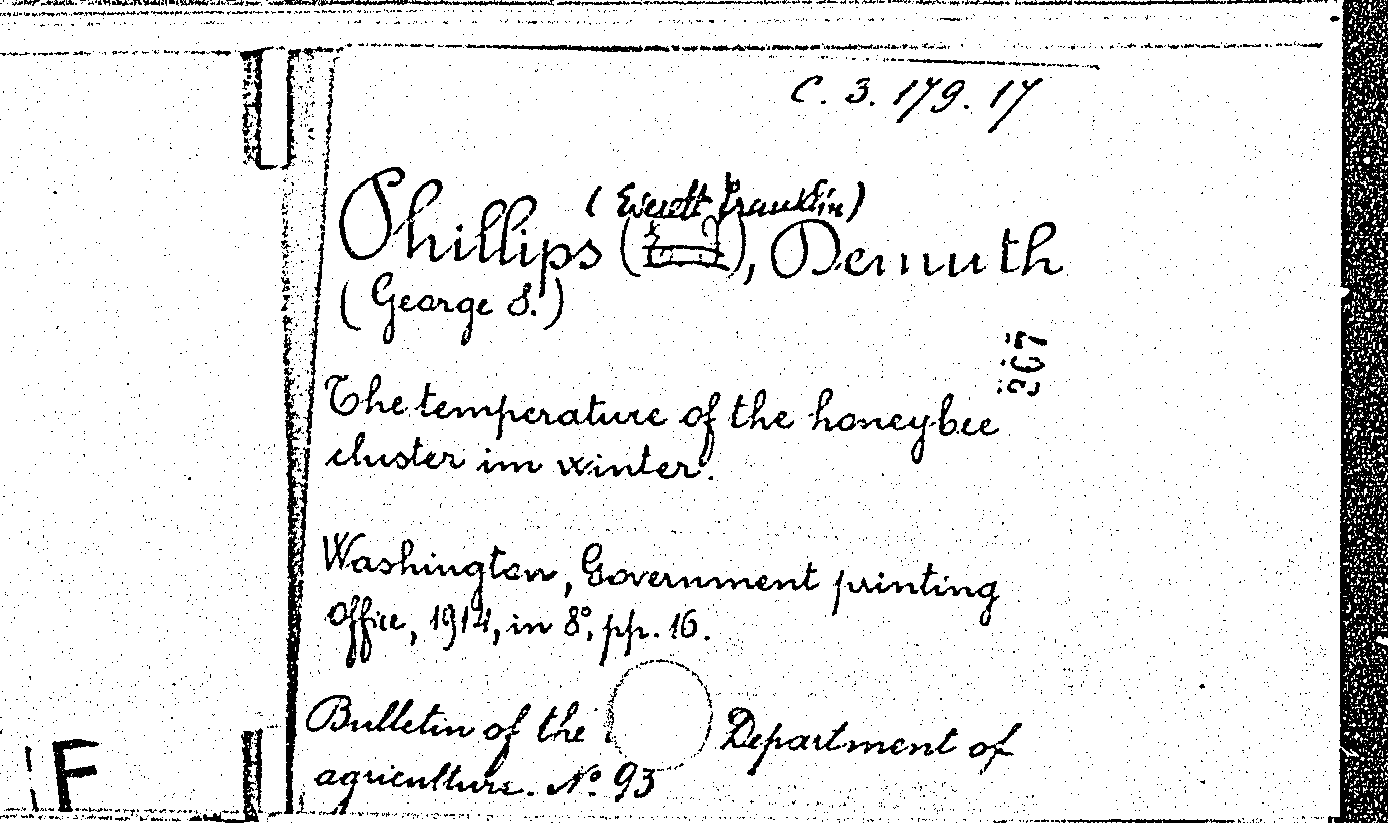 C. 3. 179. 17
(Everett Franklin)
Phillips (), Demuth
(George S.)
267
The temperature of the honeybee
cluster in winter.
Washington, Government printing
Office, 1914, in 8°, pp. 16.
Bulletin of the Department of
agriculture. N° 93
F